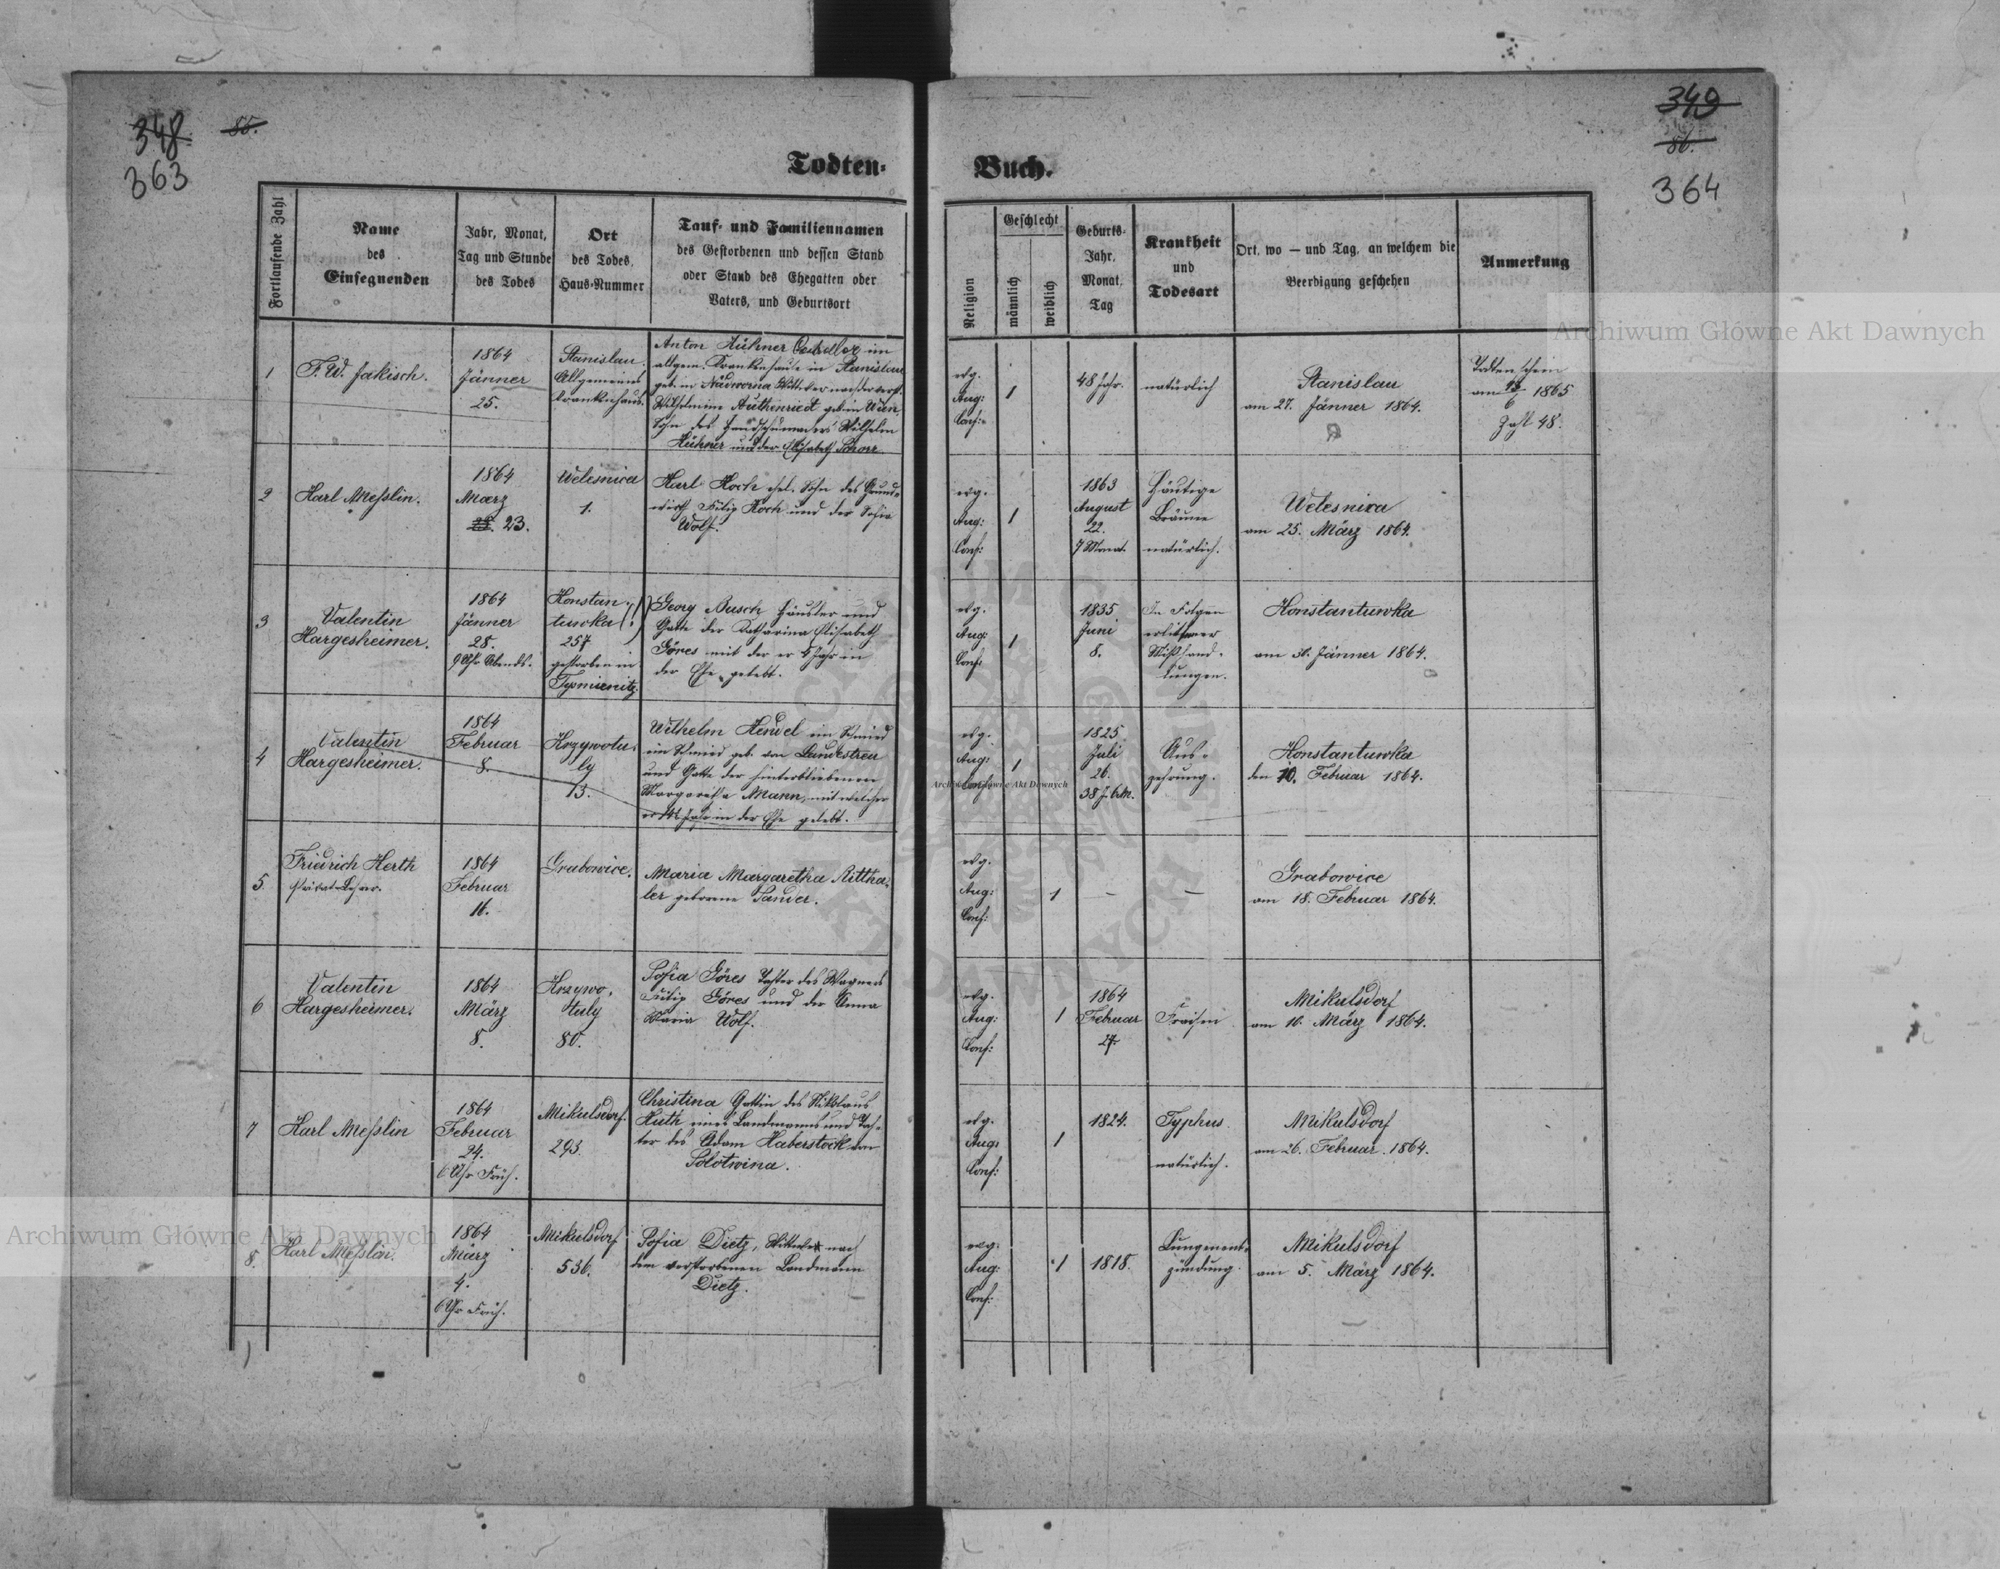 348
86.
363
349
86.
364
Todten-
Buch.
Fortlaufende Zahl
Name
des
Einsegnenden
Jahr, Monat,
Tag und Stunde
des Todes
Ort
des Todes,
Haus-Nummer
Tauf- und Familiennamen
des Gestorbenen und dessen Stand
oder Stand des Ehegatten oder
Vaters, und Geburtsort
Religion
Geschlecht
männlich
weiblich
Geburts-
Jahr,
Monat,
Tag
Krankheit
und
Todesart
Ort, wo — und Tag, an welchem die
Beerdigung geschehen
Anmerkung
1
F. W. Jakisch.
1864
Jänner
25.
Stanislau
Allgemeines
Krankenhaus.
Anton Kühner im
allgem. Krankenhause in Stanislau
geb. in Nadworna Wittwer nach der verst.
Wilhelmine Authenriedt geb. in Wien,
Sohn des Handschumachers Wilhelm
Kühner und der Elisabeth Schorr.
evg.
Aug:
Conf:
1
48 Jahr.
natürlich
Stanislau
am 27. Jänner 1864.
Todtenschein
am 13/6 1865
Zahl 48.
2
Karl Meßlin.
1864
März
23.
Welesnica
1.
Karl Koch ehel. Sohn des Grund-
wirth Filip Koch und der Sofia
Wolf.
evg.
Aug:
Conf:
1
1863
August
22.
7 Monat.
Häutige
Bräune
natürlich.
Welesnica
am 25. März 1864.
3
Valentin
Hargesheimer.
1864
Jänner
28.
9 Uhr Abends.
Konstan-
tuwka
257
gestorben in
Tysmienitz.
Georg Busch Häusler und
Gatte der Katharina Elisabeth
Göres mit der er 4 Jahr in
der Ehe gelebt.
evg.
Aug:
Conf:
1
1835
Juni
8.
In Folgen
erlittener
Mißhand-
lungen.
Konstantuwka
am 31. Jänner 1864.
4
Valentin
Hargesheimer.
1864
Februar
8.
Krzywotu-
ly
13.
Wilhelm Hendel ein Schmied
ein Schmied geb. von Landestreu
und Gatte der hinterbliebenen
Margaretha Mann, mit welcher
er 14 Jahr in der Ehe gelebt.
evg.
Aug:
Conf:
1
1825
Juli
26.
38 J. 6 M.
Aus-
zehrung.
Konstantuwka
den 10. Februar 1864.
5.
Friedrich Herth
Privat-Lehrer.
1864
Februar
16.
Grabowice.
Maria Margaretha Rittha-
ler geborene Sander.
evg.
Aug:
Conf:
1
—
—
Grabowice
am 18. Februar 1864.
6
Valentin
Hargesheimer.
1864
März
8.
Krzywo-
tuly
80.
Sofia Göres Tochter des Wagners
Filip Göres und der Anna
Maria Wolf.
evg.
Aug:
Conf:
1
1864
Februar
27.
Fraisen
Mikulsdorf
am 10. März 1864.
7
Karl Meßlin
1864
Februar
24.
6 Uhr Früh.
Mikulsdorf.
293.
Christina Gattin des Nikolaus
Huth eines Landmanns und Toch-
ter des Adam Haberstock von
Solotwina.
evg.
Aug:
Conf:
1
1824.
Typhus
natürlich.
Mikulsdorf
am 26. Februar 1864.
8.
Karl Meßlin.
1864
März
4.
6 Uhr Früh.
Mikulsdorf
536.
Sofia Dietz, Wittwe nach
dem verstorbenen Landmann
Dietz.
evg.
Aug:
Conf:
1
1818.
Lungenent-
zündung.
Mikulsdorf
am 5. März 1864.
Archiwum Główne Akt Dawnych
Archiwum Główne Akt Dawnych
Archiwum Główne Akt Dawnych